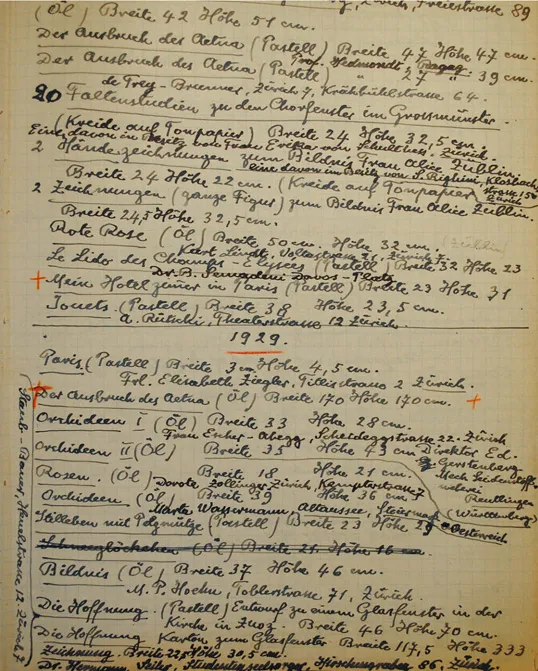 Zürich, Freiestrasse 89
(Öl) Breite 42 Höhe 51 cm.
Der Ausbruch des Aetna (Pastell) Breite 47 Höhe 47 cm.
Prof. Hedmondt,
Der Ausbruch des Aetna (Pastell) " 27 " 39 cm.
de Trey-Brenner, Zürich 7, Krähbühlstrasse 64.
20 Faltenstudien zu den Chorfenster im Grossmünster.
(Kreide auf Tonpapier) Breite 24 Höhe 32,5 cm.
Eine davon im Besitz von Frau Erika von Schulthess, Zürich.
2 Handzeichnungen zum Bildnis Frau Alice Züblin.
eine davon im Besitz von S. Righini, Klosbachstrasse 150 Zürich
Breite 24 Höhe 22 cm. (Kreide auf Tonpapier)
2 Zeichnungen (ganze Figur) zum Bildnis Frau Alice Züblin.
Breite 24,5 Höhe 32,5 cm.
Rote Rose (Öl) Breite 50 cm. Höhe 32 cm. Züblin
Karl Lindt, Voltastrasse 21, Zürich 7.
Le Lido des Champs-Elysées (Pastell) Breite 32 Höhe 23
Dr. B. Semadeni Davos-Platz
+ Mein Hotelzimer in Paris (Pastell) Breite 23 Höhe 31
Jouets (Pastell) Breite 38 Höhe 23,5 cm.
A. Rütschi, Theaterstrasse 12 Zürich.
1929.
Paris. (Pastell) Breite 3 cm Höhe 4,5 cm.
Frl. Elisabeth Ziegler, Tillistrasse 2 Zürich.
+ Der Ausbruch des Aetna (Öl) Breite 170 Höhe 170 cm. +
Orchideen I (Öl) Breite 33 Höhe 28 cm.
Frau Escher-Abegg, Scheideggstrasse 22. Zürich
Orchideen II (Öl) Breite 35 Höhe 43 cm Direktor Ed.
Gerstenberg
Mech Seidenstoff
weberei
Reutlingen
(Württemberg)
Rosen. (Öl) Breite 18 Höhe 21 cm.
Dorote Zollinger Zürich, Kempterstrasse 7
Orchideen (Öl) Breite 39 Höhe 36 cm.
Marta Wassermann, Altaussee, Steiermark Oesterreich
Stilleben mit Pelzmütze (Pastell) Breite 23 Höhe 29
Schneeglöckchen (Öl) Breite 21. Höhe 16 cm.
Bildnis (Öl) Breite 37 Höhe 46 cm.
M. P. Hoehn, Toblerstrasse 71, Zürich.
Die Hoffnung. (Pastell) Entwurf zu einem Glasfenster in der
Kirche in Zuoz. Breite 46 Höhe 70 cm.
Die Hoffnung Karton zum Glasfenster Breite 117,5 Höhe 333
Zeichnung. Breite 22,5 Höhe 30,5 cm.
Dr. Hermann Seiler, Studentenseelsorger, Hirschengraben 86, Zürich.
Staub-Bauer, strasse 12 Zürich 7